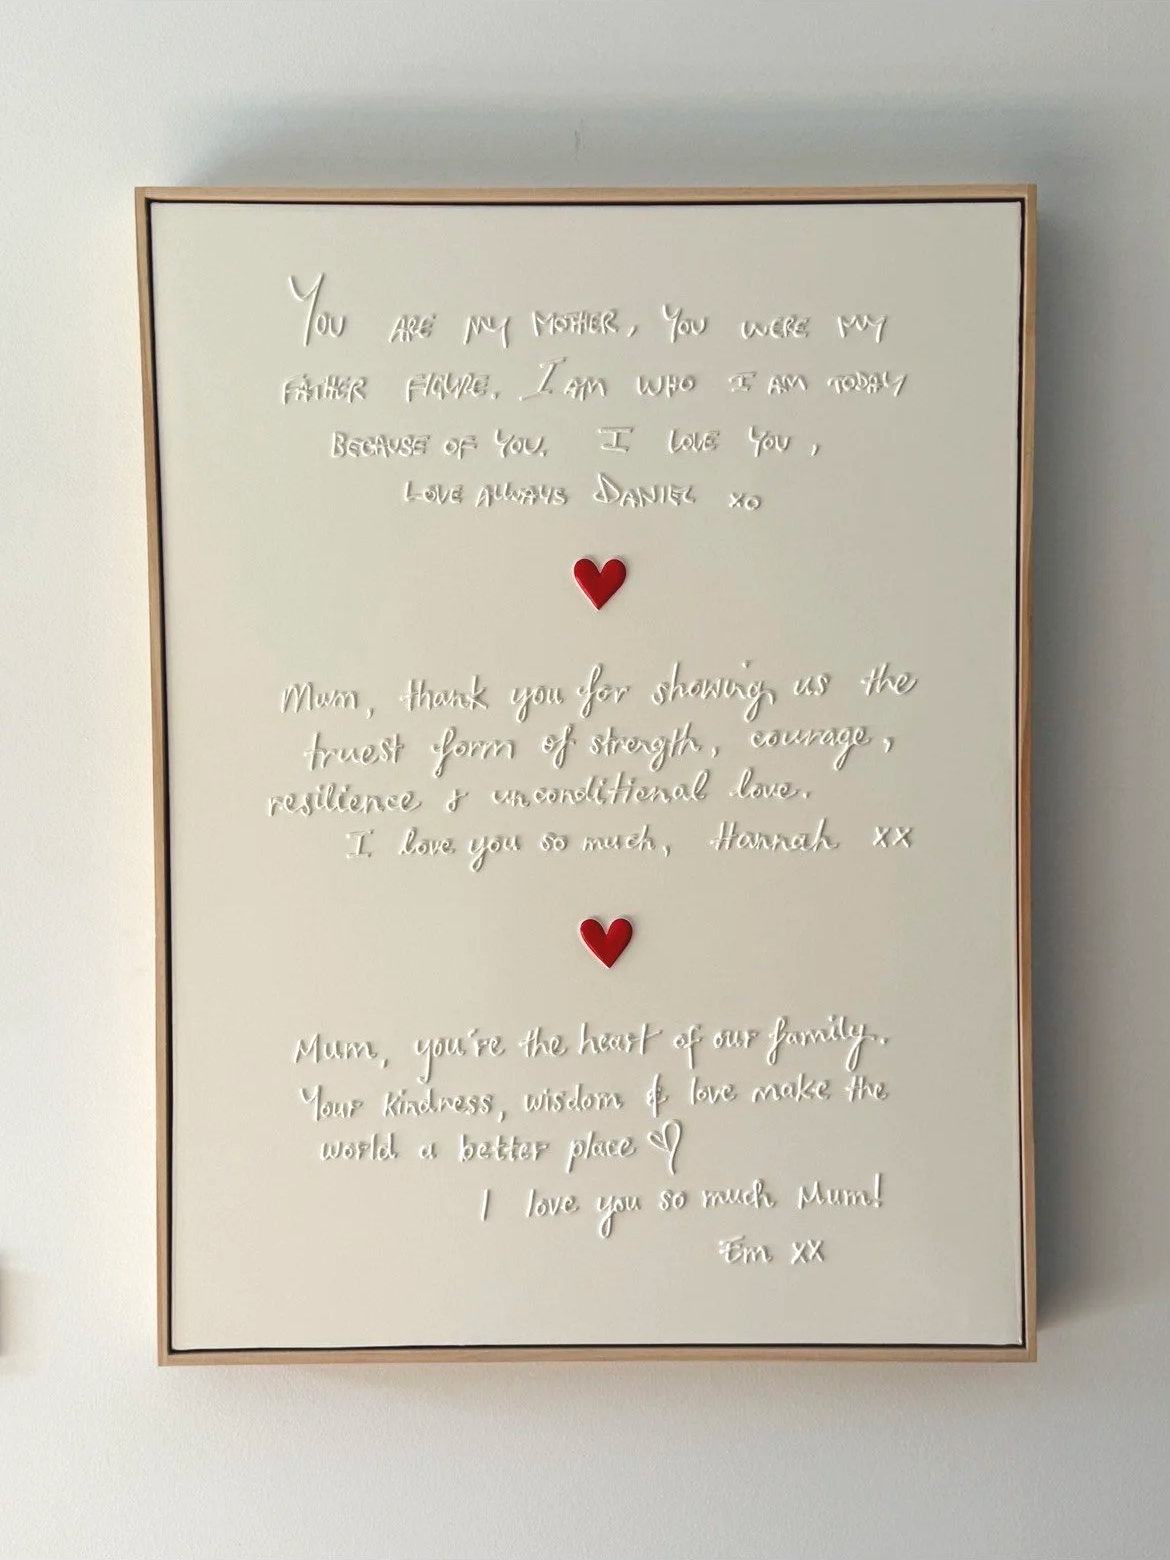 YOU ARE MY MOTHER, YOU WERE MY
FATHER FIGURE. I AM WHO I AM TODAY
BECAUSE OF YOU. I LOVE YOU,
LOVE ALWAYS DANIEL XO
Mum, thank you for showing us the
truest form of strength, courage,
resilience & unconditional love.
I love you so much, Hannah xx
Mum, you're the heart of our family.
Your kindness, wisdom & love make the
world a better place ♡
I love you so much Mum!
Em xx